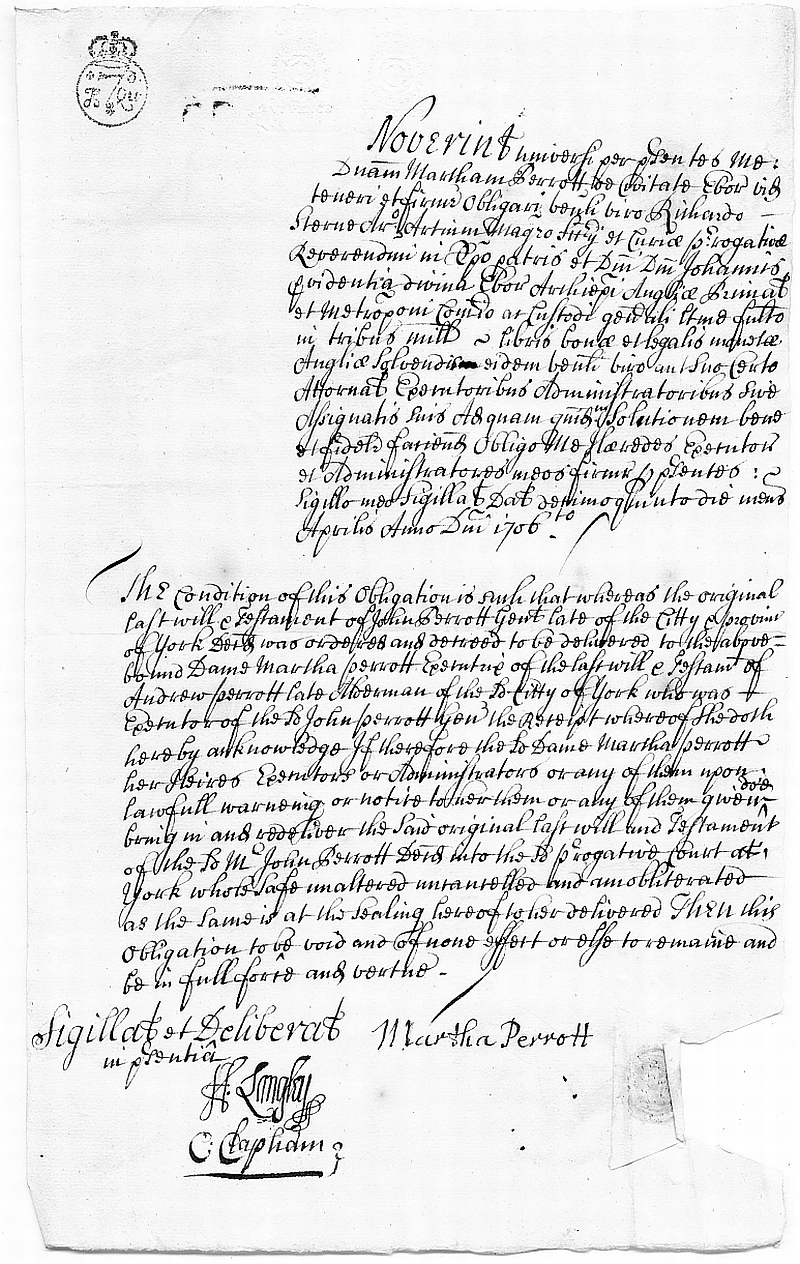 Noverint universi per psentes Me :
Dnam Martham Perrott de Civitate Ebor vid
teneri et firmr Obligari venli viro Richardo
Sterne Aro Artium Magro et Curiæ progativæ
Reverendmi in Xpo patris et Dni Dni Johannis
pvidentia divina Ebor Archiepi Angliæ Primat
et Metroponi Comrio ac Custodi genrali ltme fulto
in tribus mill libris bonæ et legalis monetæ
Angliæ Solvend eidem venli viro aut Suo Certo
Attornat Executoribus Administratoribus sive
Assignatis suis Ad quam quidm Solutionem bene
et fidelr faciend Obligo Me Hæredes Executor
et Administratores meos firmr p psentes :
Sigillo meo Sigillat Dat decimo quinto die mens
Aprilis Anno Dni 1706 to
The Condition of this Obligation is such that whereas the original
last will & Testament of John Perrott Gent late of the Citty & provin
of York Decd was ordered and decreed to be delivered to the above=
bound Dame Martha perrott Executrix of the last will & Testamt of
Andrew perrott late Alderman of the sd Citty of York who was
Executor of the sd John perrott Gent the Receipt whereof she doth
hereby acknowledge If therefore the sd Dame Martha perrott
her Heires Executors or Administrators or any of them upon
lawfull warneing or notice to her them or any of them given doe
bring in and redeliver the said original last will and Testament
of the sd Mr John Perrott Decd into the sd progative Court at
York whole safe unaltered uncancelled and unobliterated
as the same is at the sealing hereof to her delivered Then this
Obligation to be void and of none effect or else to remaine and
be in full force and vertue -
Sigillat et Deliberat Martha Perrott
in psentia
C: Clapham